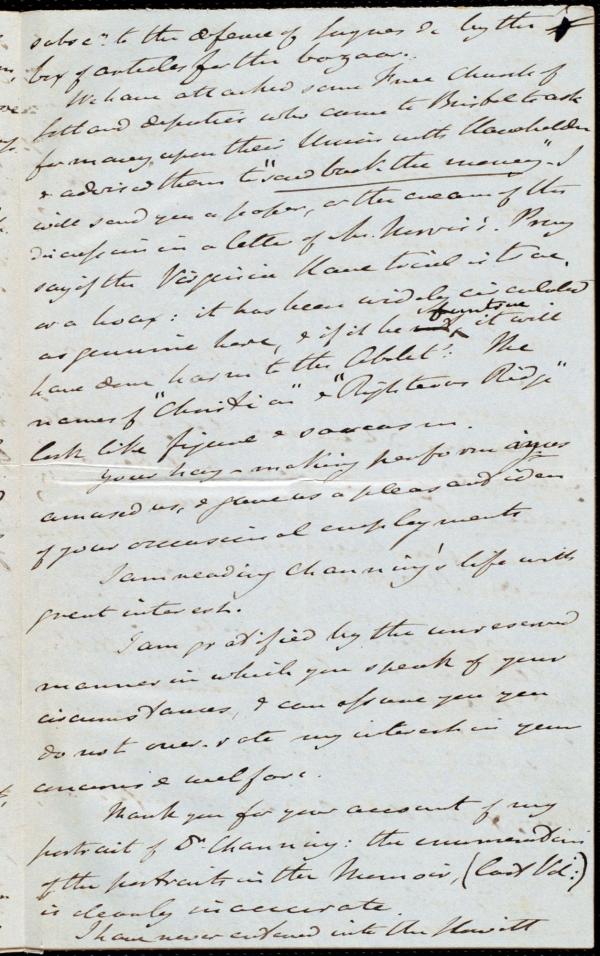 subscn. to the defence of Sayres &c by the
box of articles for the bazaar.
We have attacked some Free Church of
Scotland deputies who came to Bristol to ask
for money, upon their Union with slaveholders
& advised them to "send back the money". I
will send you a paper, or the cream of the
discussion in a letter of Mr. Norris's. Pray
say if the Virginia slave trial is true,
or a hoax: it has been widely circulated
as genuine here, & if it be untrue it will
have done harm to the Abolit:. The
names of "Christian" & "Righteous Ridge"
look like figure & sarcasm.
Your hay-making performances
amused us, & gave us a pleasant idea
of your occasional employments
I am reading Channing's life with
great interest.
I am gratified by the unreserved
manner in which you speak of your
circumstances, & can assure you you
do not over-rate my interest in your
concerns & welfare.
Thank you for your account of my
portrait of Dr. Channing: the enumeration
of the portraits in the Memoir, (last Vol:)
is clearly inaccurate.
I have never entered into the Howitt